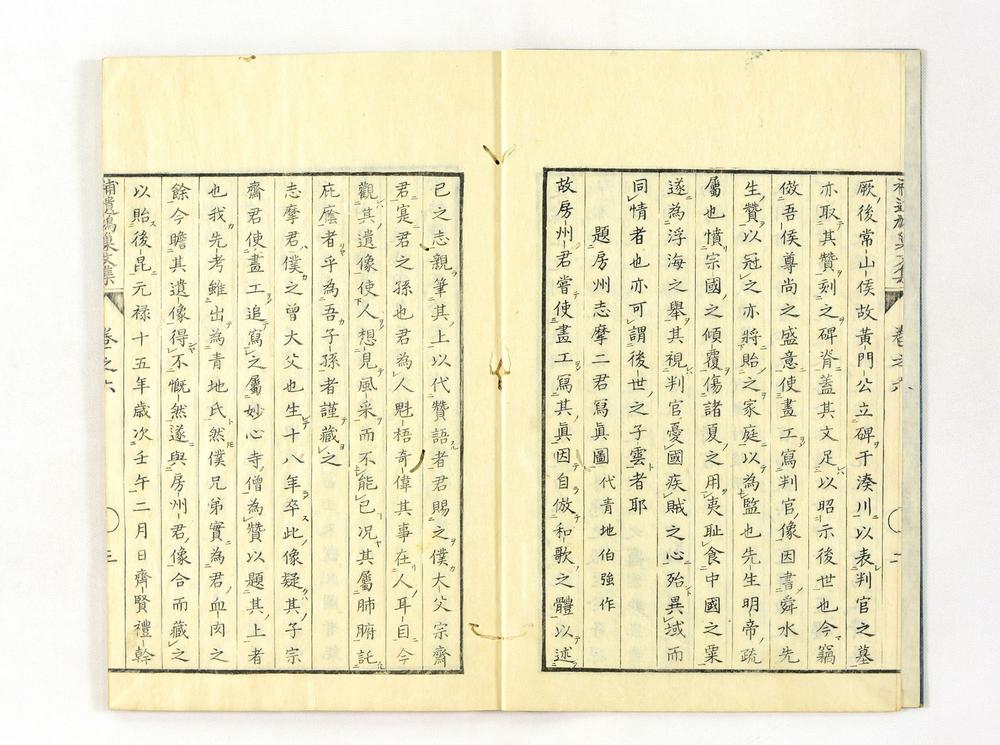 厥後常山侯故黄門公立碑于湊川以表判官之墓
亦取其贊刻之碑脊蓋其文足以昭示後世也今竊
倣吾侯尊尚之盛意使畫工寫判官像因書舜水先
生贊以冠之亦將貽之家庭以為監也先生明帝疏
屬也憤宗國之傾覆傷諸夏之用夷耻食中國之粟
遂為浮海之舉其視判官憂國疾賊之心殆異域而
同情者也亦可謂後世之子雲者耶
題房州志摩二君寫眞圖 代青地伯強作
故房州君嘗使畫工寫其眞因自倣和歌之體以述
補遺鳩巢文集 卷之六 二
已之志親筆其上以代贊語者君賜之僕大父宗齋
君寔君之孫也君為人魁梧奇偉其事在人耳目今
觀其遺像使人想見風采而不能已况其屬肺腑託
庇廕者乎為吾子孫者謹藏之
志摩君僕之曾大父也生十八年卒此像疑其子宗
齋君使畫工追寫之屬妙心寺僧為贊以題其上者
也我先考雖出為青地氏然僕兄弟實為君血肉之
餘今瞻其遺像得不慨然遂與房州君像合而藏之
以貽後昆元禄十五年歳次壬午二月日齊賢禮幹
補遺鳩巢文集 卷之六 三